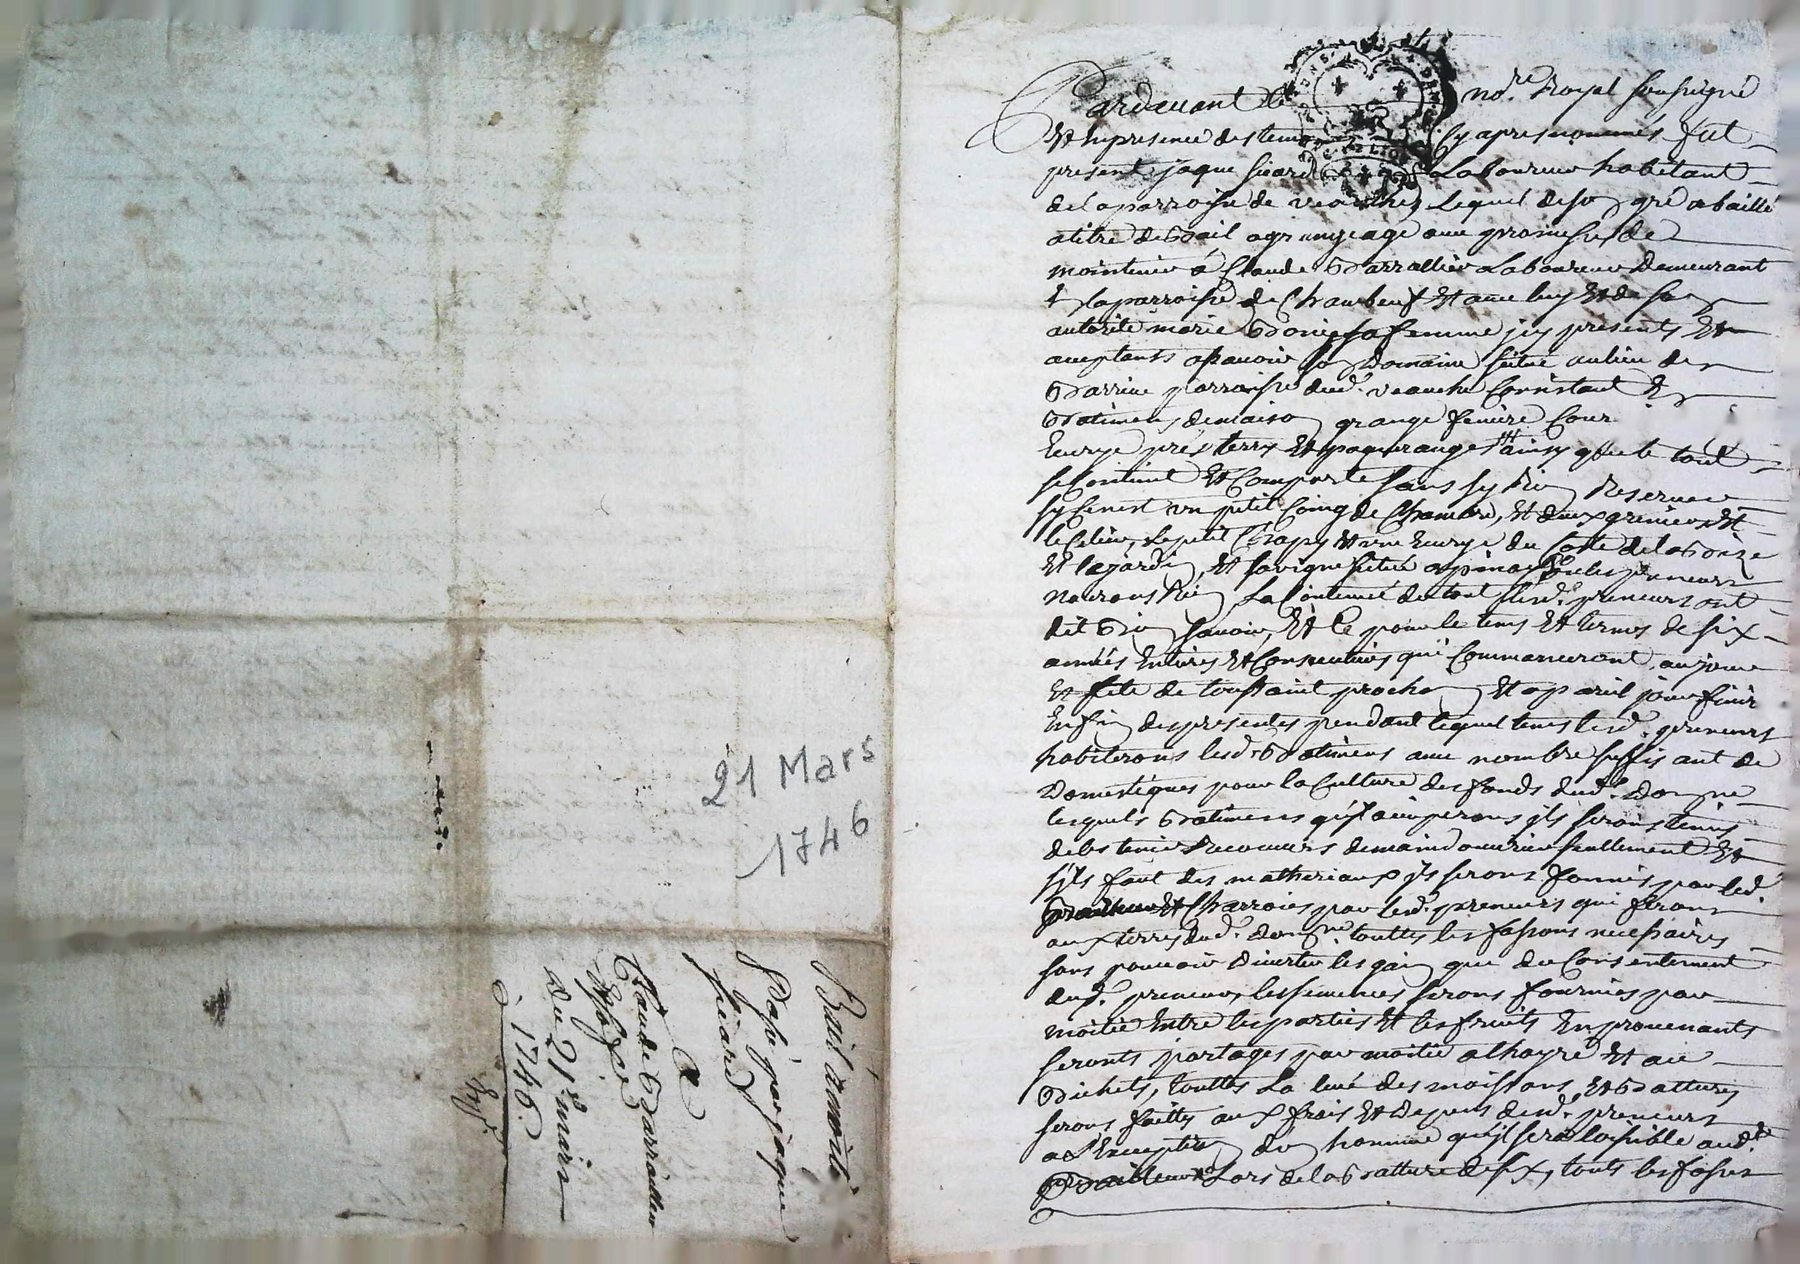 21 Mars
1746
Bail a moitié
passé par jaque
sicard
A
Claude Barrallier
du 21e mars
1746.
Pardevant le no.re Royal soussigné
Et En presence des temoins cy apres nommés fut
present jaque sicard Laboureur habitant
de la parroisse de veauche, Lequel de son gré a baillé
a titre de Bail a grangeage avec promesse de
maintenir à Claude Barrallier Laboureur Demeurant
la parroisse de Chambeuf Et avec luy Et de son
autorité marie sa femme jcy presents Et
acceptants a sçavoir son Domaine situé au lieu de
parroisse dud. veauche Consistant En
Batimens de maison grange feniere Cour
Ecurye prés terres Et paquerange ainsy que le tout
se Contient Et Comporte sans sy Rien Reserver
sy ce n'est un petit Coing de Chambre, Et deux greniers Et
le Celier, Le petit Chapy Et une Ecurye du Coté de la Bize
Et le jardin, Et la vigne située les preneurs
n'auront Rien La Contenue du tout Lesd. preneurs ont
dit Bien sçavoir, Et Ce pour le tems Et terme de six
années Entieres Et Consecutives qui Commanceront au jour
Et fete de toussaint prochain Et a pareil jour finir
En fin des presentes pendant lequel tems lesd. preneurs
habiterons lesd. Batimens avec nombre suffisant de
Domestiques pour la Culture des fonds dud. Domne
lesquels Batimens qu'jl occuperons jls serons tenus
de les tenir Recouvers de main d'ouvrier seullement Et
s'jls faut des matheriaux jls serons fournis par led.
Bailleur Et Charroiés par lesd. preneurs qui ferons
aux terres dud. domne touttes les fassons necessaires
sans pouvoir divertir les gains que du Consentement
dud. preneur, les semences serons fournies par
moitié Entre les parties Et les fruits En provenants
seronts partagés par moitié a l'hayre Et au
Bichets, touttes La levé des moissons Et Battures
serons faittes aux frais Et Depens desd. preneurs
a L'Exception d'un homme qu'jl sera loisible aud.
Bailleur Lors de la Batture de touts les fosses